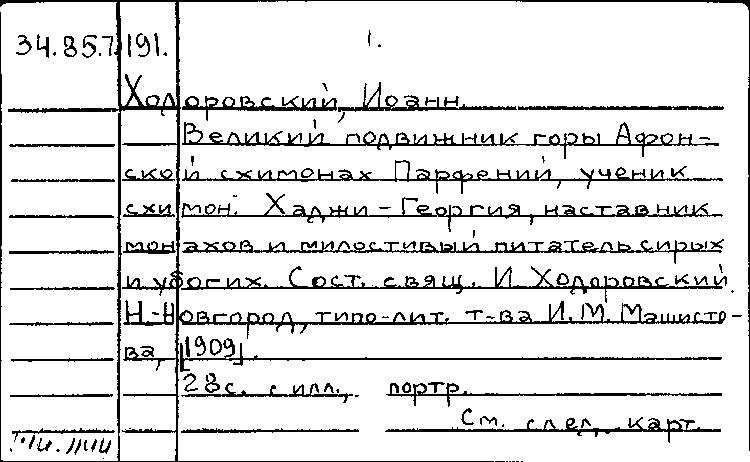 34.85.7.191. 1.
Ходоровский, Иоанн.
Великий подвижник горы Афон-
ской схимонах Парфений, ученик
схимон. Хаджи-Георгия, наставник
монахов и милостивый питатель сирых
и убогих. Сост. свящ. И. Ходоровский.
Н.-Новгород, типо-лит. т-ва И.М. Машисто-
ва, [1909].
28 с. с илл., портр.
См. след. карт.